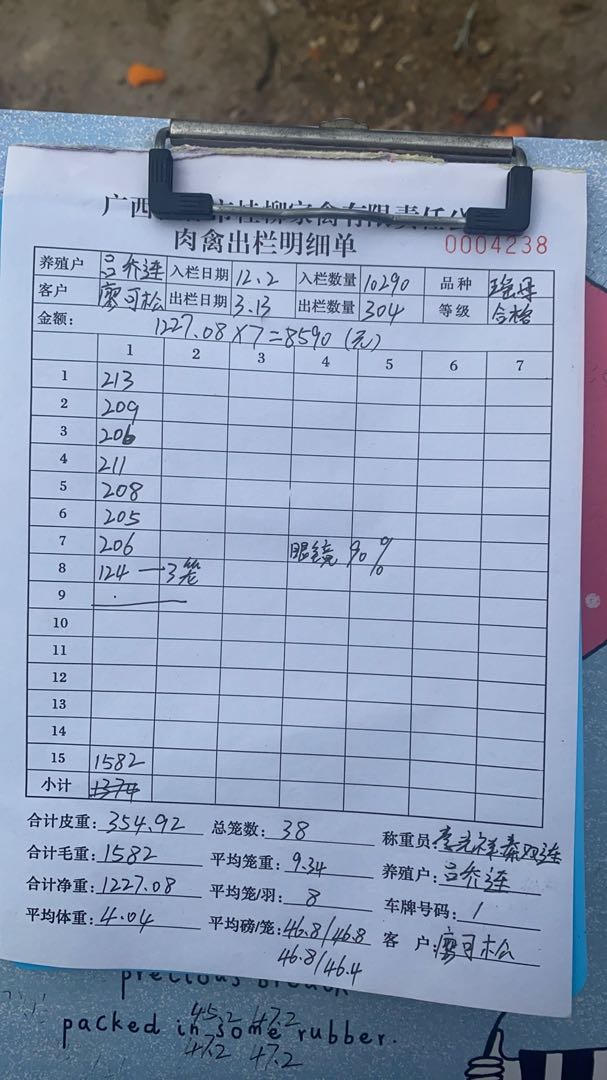 广西 市桂柳家禽有限责任公
肉禽出栏明细单 0004238
养殖户 吕乔连 入栏日期 12.2 入栏数量 10290 品种
客户 廖可松 出栏日期 3.13 出栏数量 304 等级 合格
金额: 1227.08×7=8590(元)
1 2 3 4 5 6 7
1 213
2 209
3 206
4 211
5 208
6 205
7 206 眼镜 90%
8 124 — 3笼
9
10
11
12
13
14
15 1582
小计 1374
合计皮重: 354.92 总笼数: 38 称重员:
合计毛重: 1582 平均笼重: 9.34 养殖户: 吕乔连
合计净重: 1227.08 平均笼/羽: 8 车牌号码: 1
平均体重: 4.04 平均磅/笼: 46.8/46.8 客 户: 廖可松
46.8/46.4
precious
45.2 47.2
packed in some rubber.
47.2 47.2